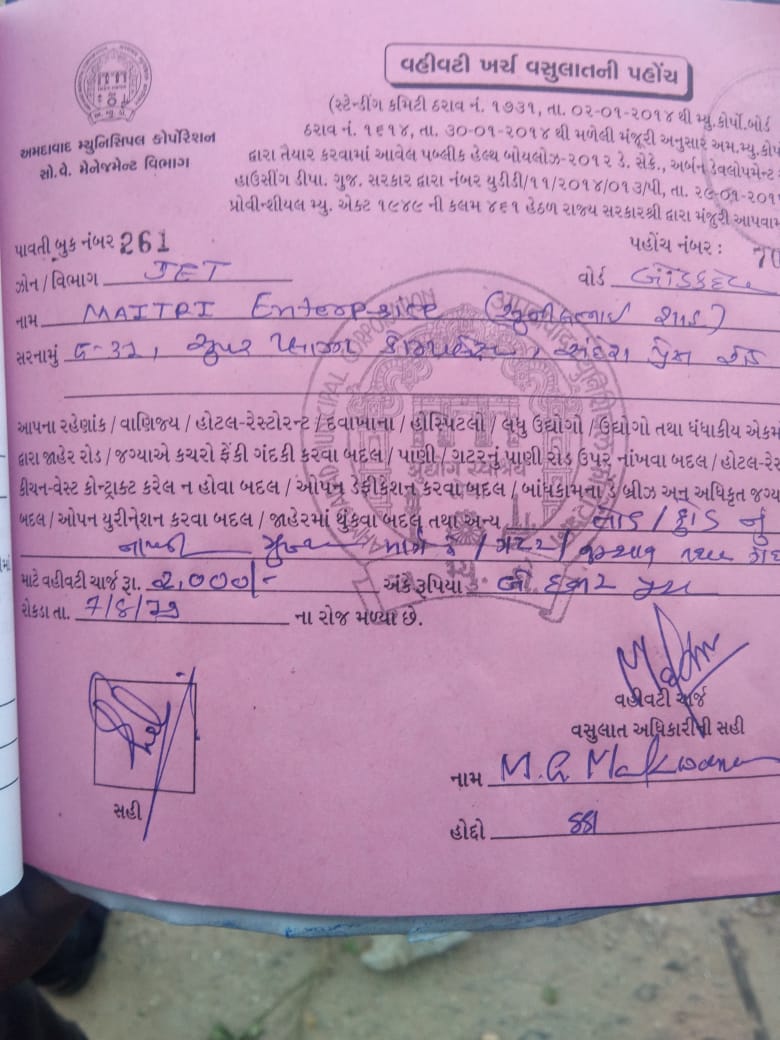 વહીવટી ખર્ચ વસુલાતની પહોંચ
અમદાવાદ મ્યુનિસિપલ કોર્પોરેશન
સો.વે. મેનેજમેન્ટ વિભાગ
(સ્ટેન્ડીંગ કમિટી ઠરાવ નં. ૧૭૩૧, તા. ૦૨-૦૧-૨૦૧૪ થી મ્યુ.કોર્પો.બોર્ડ
ઠરાવ નં. ૧૬૧૪, તા. ૩૦-૦૧-૨૦૧૪ થી મળેલી મંજૂરી અનુસાર અમ.મ્યુ.કોર્પો
દ્વારા તૈયાર કરવામાં આવેલ પબ્લીક હેલ્થ બોયલોઝ-૨૦૧૨ ડે. સેકે., અર્બન ડેવલોપમેન્ટ
હાઉસીંગ ડીપા. ગુજ. સરકાર દ્વારા નંબર યુડીડી/૧૧/૨૦૧૪/૦૧૩/પી, તા. ૨૯-૦૧-૨૦૧
પ્રોવીન્શીયલ મ્યુ. એક્ટ ૧૯૪૯ ની કલમ ૪૬૧ હેઠળ રાજ્ય સરકારશ્રી દ્વારા મંજુરી આપવામ
પાવતી બુક નંબર 261 પહોંચ નંબર : 70
ઝોન / વિભાગ JET વોર્ડ બોડકદેવ
નામ MAITRI Enterprise (સુનીલભાઈ શાહ)
સરનામું સુપર પ્લાઝા કોમ્પલેક્ષ, સંદેશ પ્રેસ રોડ
આપના રહેણાંક / વાણિજ્ય / હોટલ-રેસ્ટોરન્ટ / દવાખાના / હોસ્પિટલો / લઘુ ઉદ્યોગો / ઉદ્યોગો તથા ધંધાકીય એકમ
દ્વારા જાહેર રોડ / જગ્યાએ કચરો ફેંકી ગંદકી કરવા બદલ / પાણી / ગટરનું પાણી રોડ ઉપર નાંખવા બદલ / હોટલ-રેસ
કીચન-વેસ્ટ કોન્ટ્રાક્ટ કરેલ ન હોવા બદલ / ઓપન ડેફીકેશન કરવા બદલ / બાંધકામના ડેબ્રીઝ અનઅધિકૃત જગ્ય
બદલ / ઓપન યુરીનેશન કરવા બદલ / જાહેરમાં થુંકવા બદલ તથા અન્ય નું
ગટર
માટે વહીવટી ચાર્જ રૂા. ૨,૦૦૦/- અંકે રૂપિયા બે હજાર પુરા
રોકડા તા. 7/8/23 ના રોજ મળ્યા છે.
વહીવટી ચાર્જ
વસુલાત અધિકારીની સહી
નામ M.G Makwana
સહી
હોદ્દો SSI